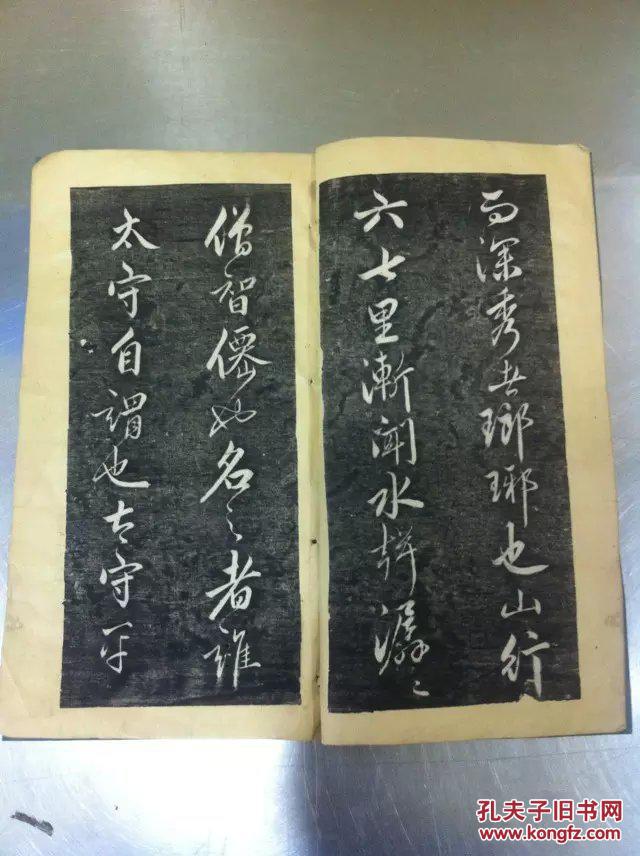 而深秀者瑯琊也山行
六七里漸聞水聲潺〻
僧智僊也名之者誰
太守自謂也太守与
孔夫子旧书网
www.kongfz.com